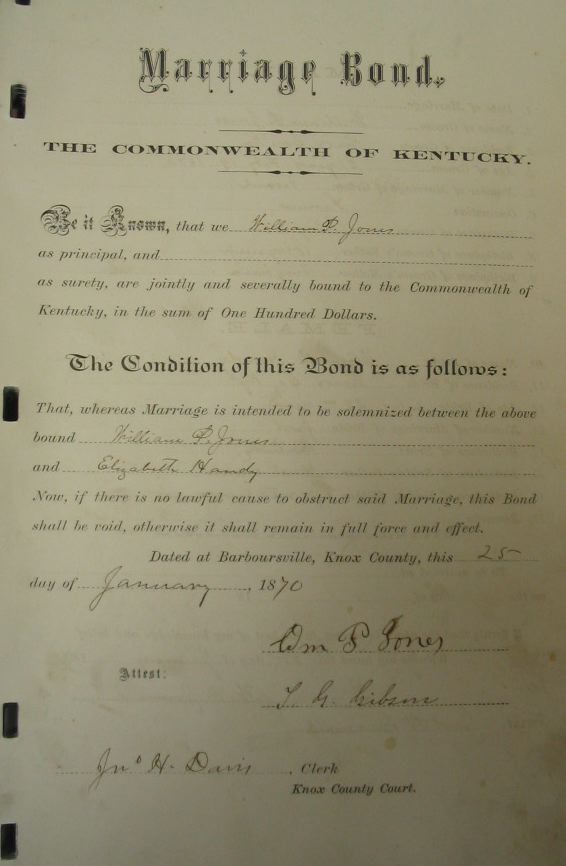 Marriage Bond.
THE COMMONWEALTH OF KENTUCKY.
Be it Known, that we William P. Jones
as principal, and
as surety, are jointly and severally bound to the Commonwealth of
Kentucky, in the sum of One Hundred Dollars.
The Condition of this Bond is as follows:
That, whereas Marriage is intended to be solemnized between the above
bound William P. Jones
and Elizabeth Handy
Now, if there is no lawful cause to obstruct said Marriage, this Bond
shall be void, otherwise it shall remain in full force and effect.
Dated at Barboursville, Knox County, this 25
day of January, 1870
Wm P Jones
Attest:
G. Gibson
Jno H. Davis, Clerk
Knox County Court.